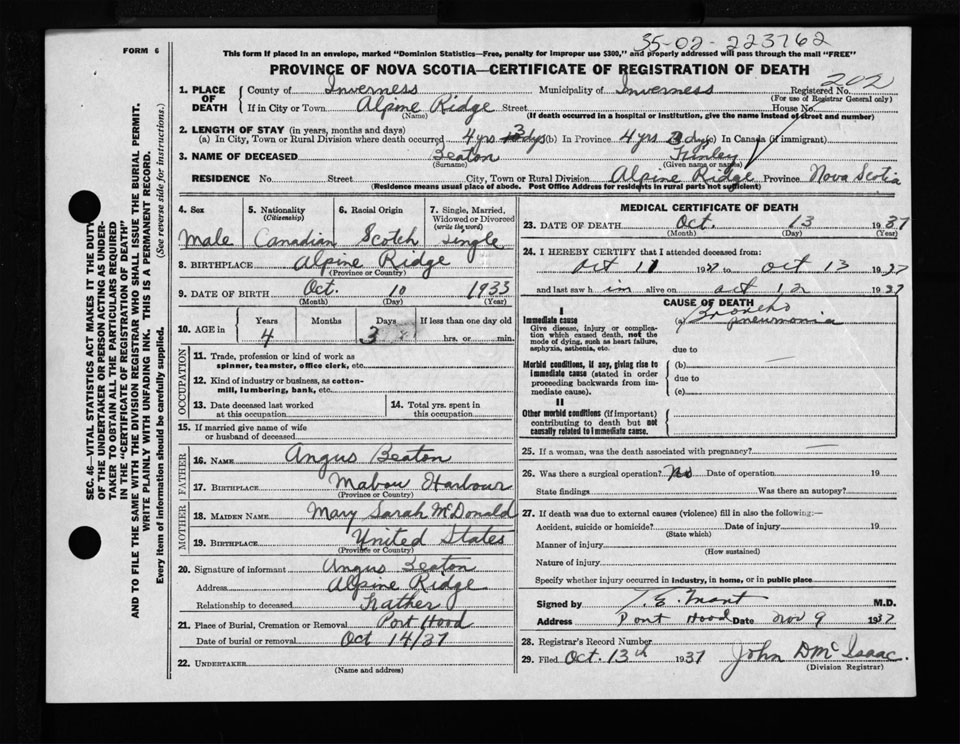 35-02-223762
FORM 6
This form if placed in an envelope, marked "Dominion Statistics—Free, penalty for improper use $300," and properly addressed will pass through the mail "FREE"
PROVINCE OF NOVA SCOTIA—CERTIFICATE OF REGISTRATION OF DEATH
202
1. PLACE OF DEATH County of Inverness Municipality of Inverness Registered No.
(For use of Registrar General only)
If in City or Town Alpine Ridge Street House No.
(Name) (If death occurred in a hospital or institution, give the name instead of street and number)
2. LENGTH OF STAY (in years, months and days)
(a) In City, Town or Rural Division where death occurred 4 yrs 3 dys (b) In Province 4 yrs 3 dys (c) In Canada (if immigrant)
3. NAME OF DECEASED Beaton Finley
(Surname) (Given name or names)
RESIDENCE No. Street City, Town or Rural Division Alpine Ridge Province Nova Scotia
(Residence means usual place of abode. Post Office Address for residents in rural parts not sufficient)
4. Sex 5. Nationality (Citizenship) 6. Racial Origin 7. Single, Married, Widowed or Divorced (write the word)
Male Canadian Scotch Single
8. BIRTHPLACE Alpine Ridge
(Province or Country)
9. DATE OF BIRTH Oct. 10 1933
(Month) (Day) (Year)
10. AGE in Years Months Days If less than one day old
4 3 hrs. or min.
OCCUPATION
11. Trade, profession or kind of work as spinner, teamster, office clerk, etc.
12. Kind of industry or business, as cotton-mill, lumbering, bank, etc.
13. Date deceased last worked at this occupation
14. Total yrs. spent in this occupation
15. If married give name of wife or husband of deceased
FATHER
16. NAME Angus Beaton
17. BIRTHPLACE Mabou Harbour
(Province or Country)
MOTHER
18. MAIDEN NAME Mary Sarah McDonald
19. BIRTHPLACE United States
(Province or Country)
20. Signature of informant Angus Beaton
Address Alpine Ridge
Relationship to deceased Father
21. Place of Burial, Cremation or Removal Port Hood
Date of burial or removal Oct 14/37
22. UNDERTAKER
(Name and address)
MEDICAL CERTIFICATE OF DEATH
23. DATE OF DEATH Oct. 13 1937
(Month) (Day) (Year)
24. I HEREBY CERTIFY that I attended deceased from:
Oct 11 1937 to Oct 13 1937
and last saw him alive on Oct 12 1937
CAUSE OF DEATH
I
Immediate cause (a) Broncho pneumonia
Give disease, injury or complication which caused death, not the mode of dying, such as heart failure, asphyxia, asthenia, etc.
due to
Morbid conditions, if any, giving rise to immediate cause (stated in order proceeding backwards from immediate cause).
(b)
due to
(c)
II
Other morbid conditions (if important) contributing to death but not causally related to immediate cause.
25. If a woman, was the death associated with pregnancy?
26. Was there a surgical operation? No Date of operation 19
State findings Was there an autopsy?
27. If death was due to external causes (violence) fill in also the following:—
Accident, suicide or homicide? Date of injury 19
(State which)
Manner of injury
(How sustained)
Nature of injury
Specify whether injury occurred in industry, in home, or in public place
Signed by M.D.
Address Port Hood Date Nov 9 1937
28. Registrar's Record Number
29. Filed Oct. 13th 1937 John D McIsaac.
(Division Registrar)
SEC. 46—VITAL STATISTICS ACT MAKES IT THE DUTY
OF THE UNDERTAKER OR PERSON ACTING AS UNDER-
TAKER TO OBTAIN ALL THE PARTICULARS REQUIRED
IN THE "CERTIFICATE OF REGISTRATION OF DEATH"
AND TO FILE THE SAME WITH THE DIVISION REGISTRAR WHO SHALL ISSUE THE BURIAL PERMIT.
WRITE PLAINLY WITH UNFADING INK. THIS IS A PERMANENT RECORD.
Every item of information should be carefully supplied. (See reverse side for instructions.)